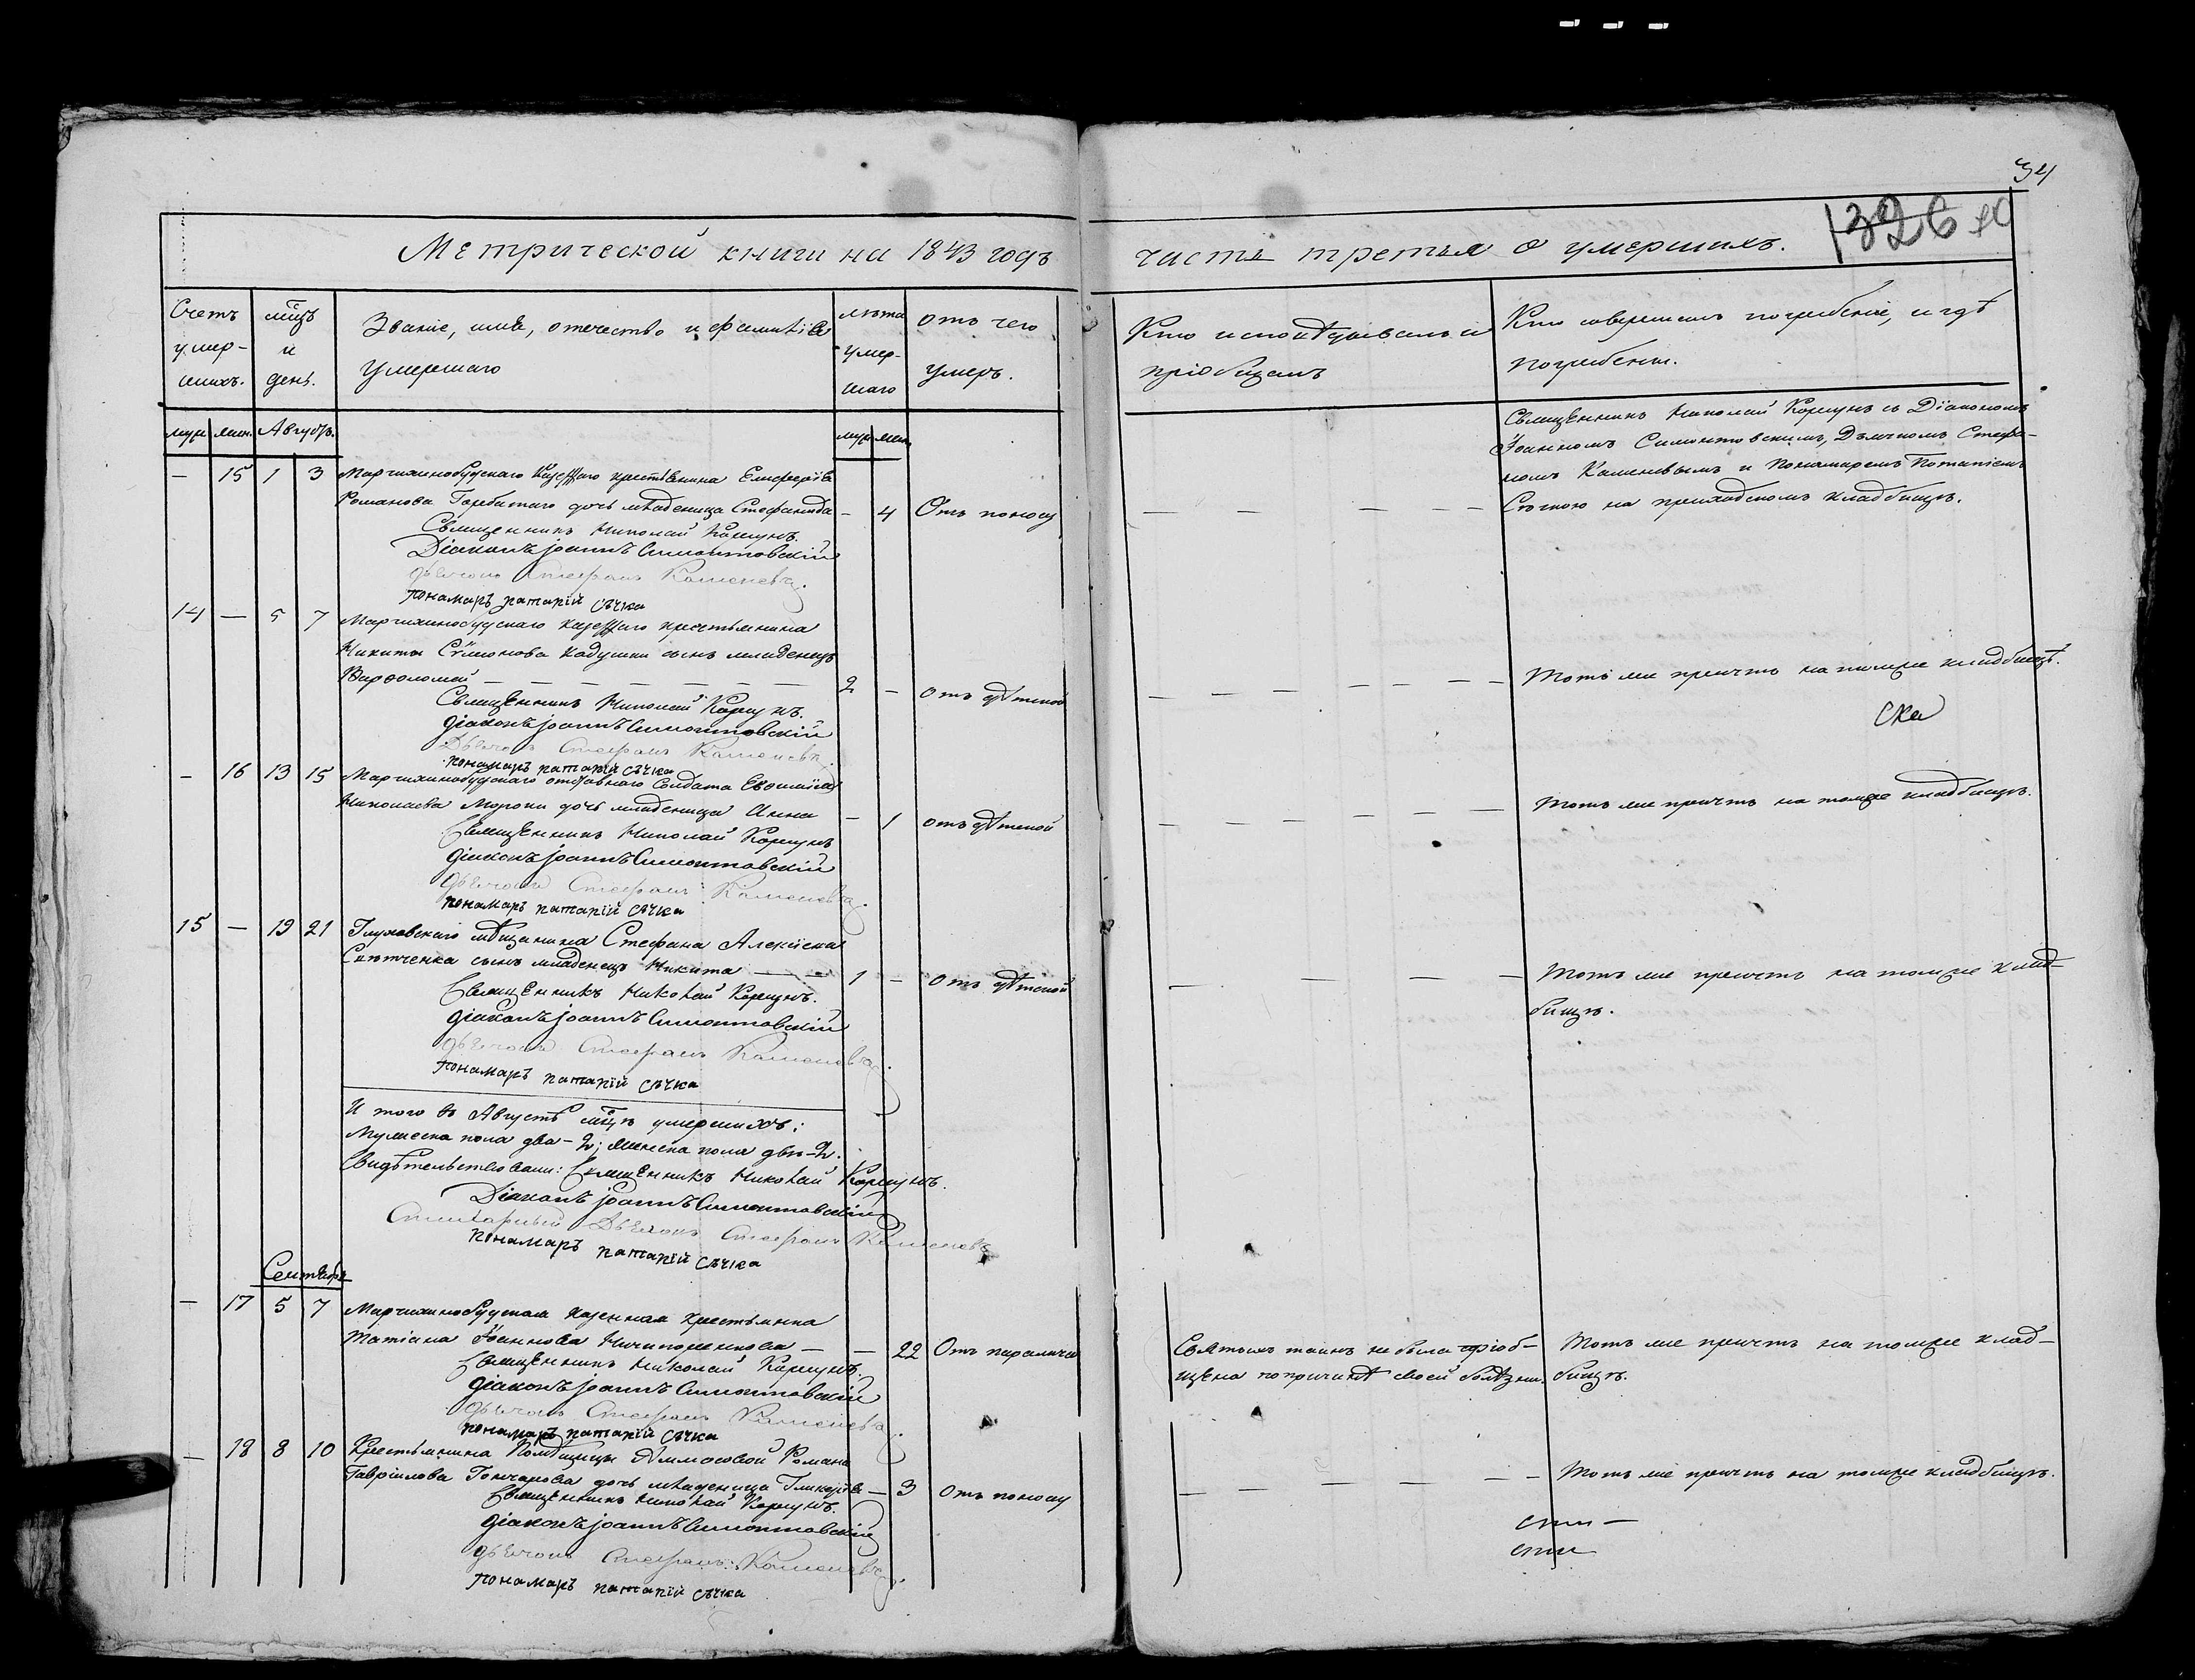 34
1326 40
Метрической книги на 1843 годъ
часть третья о умершихъ.
Счетъ умер-шихъ.
мц҃ъ и день.
Званіе, имя, отечество и фамилія умершаго
лѣта умер-шаго
отъ чего умеръ.
Кто исповѣдывалъ и пріобщалъ
Кто совершалъ погребеніе, и гдѣ погребены.
муж жен. Августъ.
муж жен.
— 15 1 3 Марчихинобудскаго казеннаго крестьянина Елефферія
Романова Горбатаго дочь младеница Стефанида — 4 Отъ поносу
Священникъ Николай Коршунъ.
Діаконъ Іоаннъ Симонтовскій
Дьячокъ Стефанъ Каменевъ.
Пономаръ Патапій Сѣчка
Священникъ Николай Коршунъ съ Діакономъ
Іоанномъ Симонтовскимъ, Дьячкомъ Стефа-
номъ Каменевымъ и Понамаремъ Потапіемъ
Сѣчкою на приходскомъ кладбищѣ.
14 — 5 7 Марчихинобудскаго казеннаго крестьянина
Никиты Сѷмонова Кадушки сынъ младенецъ
Варѳоломей — 2 — отъ дѣтской
Священникъ Николай Коршунъ.
Діаконъ Іоаннъ Симонтовскій
Дьячокъ Стефанъ Каменевъ.
Пономаръ Патапій Сѣчка
Тотъ же причтъ на томже кладбищѣ.
ска
— 16 13 15 Марчихинобудскаго отставнаго Солдата Евѳимія
Николаева Мороки дочь младеница Анна — 1 отъ дѣтской
Священникъ Николай Коршунъ
Діаконъ Іоаннъ Симонтовскій
Дьячокъ Стефанъ Каменевъ.
Пономаръ Патапій Сѣчка
Тотъ же причтъ на томже кладбищѣ.
15 — 19 21 Глуховскаго мѣщанина Стефана Алексіева
сынъ младенецъ Никита — 1 — Отъ дѣтской
Священникъ Николай Коршунъ.
Діаконъ Іоаннъ Симонтовскій
Дьячокъ Стефанъ Каменевъ
Пономаръ Патапій Сѣчка
Тотъ же причтъ на томже клад-
бищѣ.
И того въ Августѣ мц҃ѣ умершихъ:
Мужеска пола два - 2; женска пола двѣ - 2.
Свидѣтельствовали: Священникъ Николай Коршунъ.
Діаконъ Іоаннъ Симонтовскій
Дьячокъ Стефанъ Каменевъ
Пономаръ Патапій Сѣчка
Сентябрь
— 17 5 7 Марчихинобудская казенная крестьянка
Татіана Іоаннова Ничипоренкова — — 22 Отъ паралича
Священникъ Николай Коршунъ.
Діаконъ Іоаннъ Симонтовскій
Дьячокъ Стефанъ Каменевъ.
Пономаръ Патапій Сѣчка
Святыхъ таинъ не была пріоб-
щена по причинѣ своей болѣзни.
Тотъ же причтъ на томже клад-
бищѣ.
— 18 8 10 Крестьянина Помѣщицы Романа
Гавріилова Гончарова дочь младеница Гликерія — 3 отъ поносу
Священникъ Николай Коршунъ.
Діаконъ Іоаннъ Симонтовскій
Дьячокъ Стефанъ Каменевъ.
Пономаръ Патапій Сѣчка
Тотъ же причтъ на томже кладбищѣ.